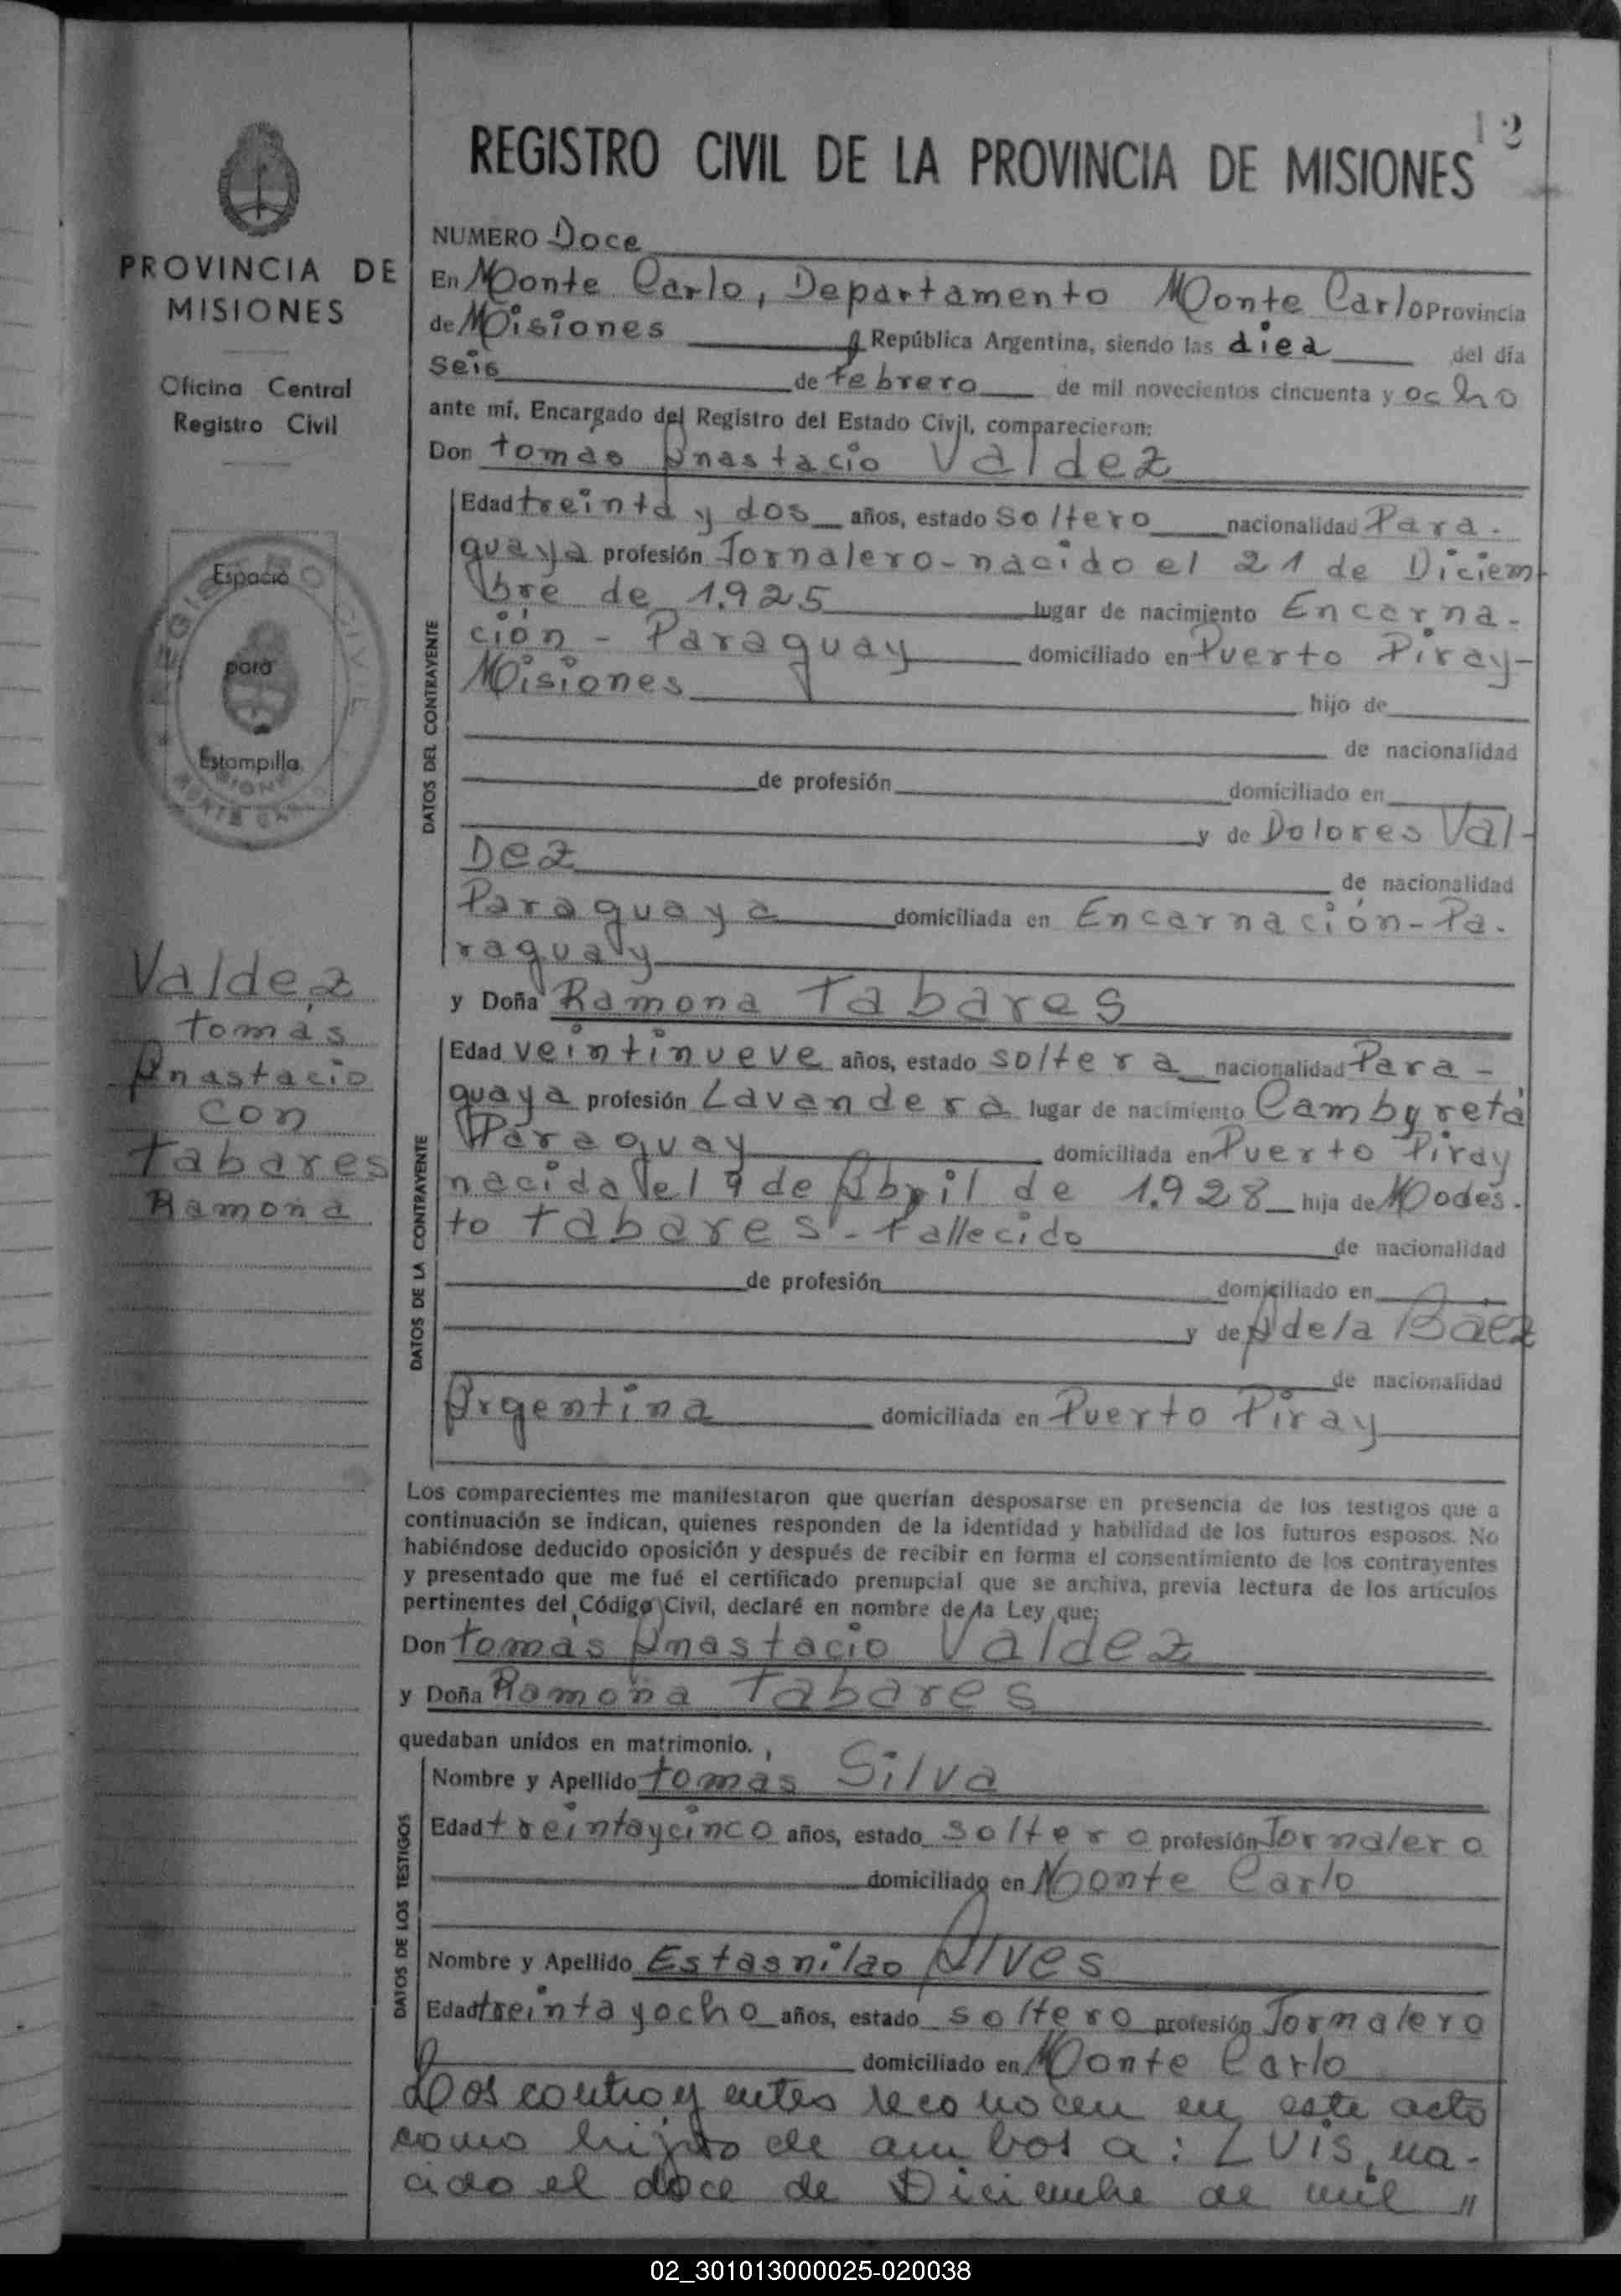 12
REGISTRO CIVIL DE LA PROVINCIA DE MISIONES
PROVINCIA DE
MISIONES
Oficina Central
Registro Civil
Espacio
para
Estampilla
Valdez
tomás
Anastacio
con
Tabares
Ramona
NUMERO Doce
En Monte Carlo, Departamento Monte Carlo Provincia
de Misiones República Argentina, siendo las diez del día
seis de Febrero de mil novecientos cincuenta y ocho
ante mí, Encargado del Registro del Estado Civil, comparecieron:
Don tomas Anastacio Valdez
DATOS DEL CONTRAYENTE
Edad treinta y dos años, estado soltero nacionalidad Para-
guaya profesión Jornalero-nacido el 21 de Diciem
bre de 1.925 lugar de nacimiento Encarna-
ción - Paraguay domiciliado en Puerto Piray-
Misiones hijo de
de nacionalidad
de profesión domiciliado en
y de Dolores Val-
Dez de nacionalidad
Paraguaya domiciliada en Encarnación-Pa-
raguay
y Doña Ramona Tabares
DATOS DE LA CONTRAYENTE
Edad veintinueve años, estado soltera nacionalidad Para-
guaya profesión Lavandera lugar de nacimiento Cambyretá
Paraguay domiciliada en Puerto Piray
nacida el 9 de Abril de 1.928 hija de Modes-
to Tabares - Fallecido de nacionalidad
de profesión domiciliado en
y de Adela Báez
de nacionalidad
Argentina domiciliada en Puerto Piray
Los comparecientes me manifestaron que querían desposarse en presencia de los testigos que a
continuación se indican, quienes responden de la identidad y habilidad de los futuros esposos. No
habiéndose deducido oposición y después de recibir en forma el consentimiento de los contrayentes
y presentado que me fué el certificado prenupcial que se archiva, previa lectura de los artículos
pertinentes del Código Civil, declaré en nombre de la Ley que:
Don tomás Anastacio Valdez
y Doña Ramona Tabares
quedaban unidos en matrimonio.
DATOS DE LOS TESTIGOS
Nombre y Apellido tomas Silva
Edad treintaycinco años, estado soltero profesión Jornalero
domiciliado en Monte Carlo
Nombre y Apellido Estasnilao Alves
Edad treinta yocho años, estado soltero profesión Jornalero
domiciliado en Monte Carlo
Los contrayentes reconocen en este acto
como hijos de ambos a: LUIS, na-
cido el doce de Diciembre de mil "
02_301013000025-020038